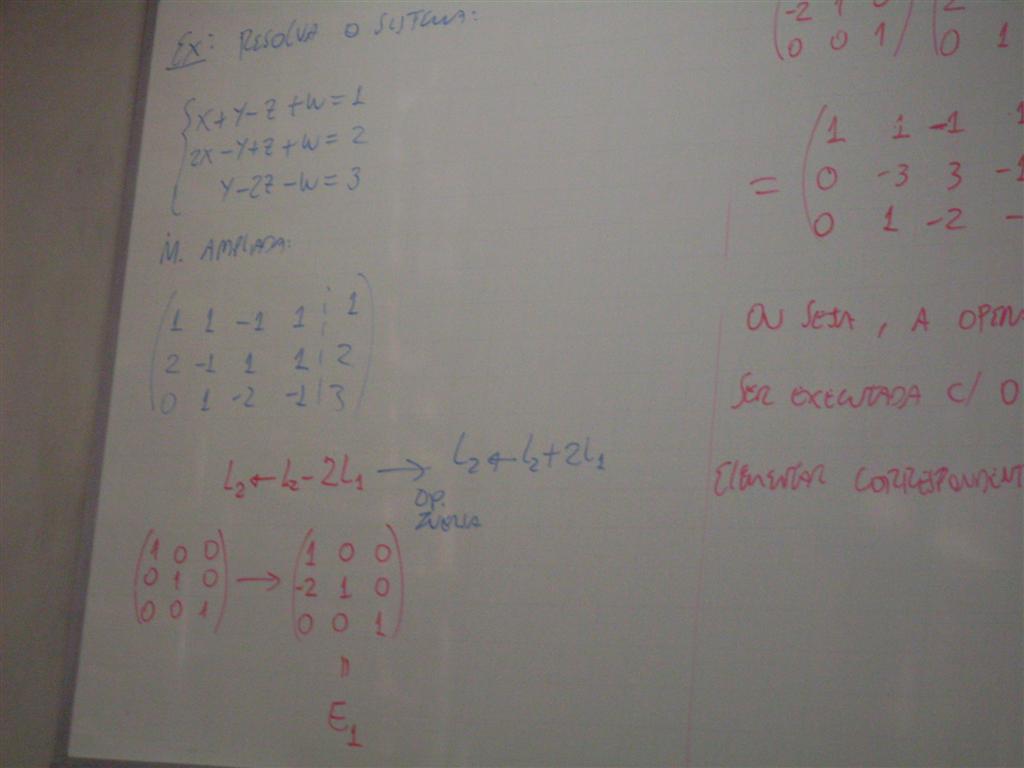 Ex: RESOLVA O SISTEMA:
X+Y-Z+W=1
2X-Y+Z+W=2
Y-2Z-W=3
M. AMPLIADA:
1 1 -1 1 1
2 -1 1 1 2
0 1 -2 -1 3
L2←L2-2L1 → L2←L2+2L1
OP.
INVERSA
1 0 0 → 1 0 0
0 1 0 -2 1 0
0 0 1 0 0 1
"
E1
-2 1 0 2
0 0 1 0 1
= 1 1 -1 1
0 -3 3 -1
0 1 -2 -
OU SEJA, A OPERA
SER EXECUTADA C/ O
ELEMENTAR CORRESPONDENT